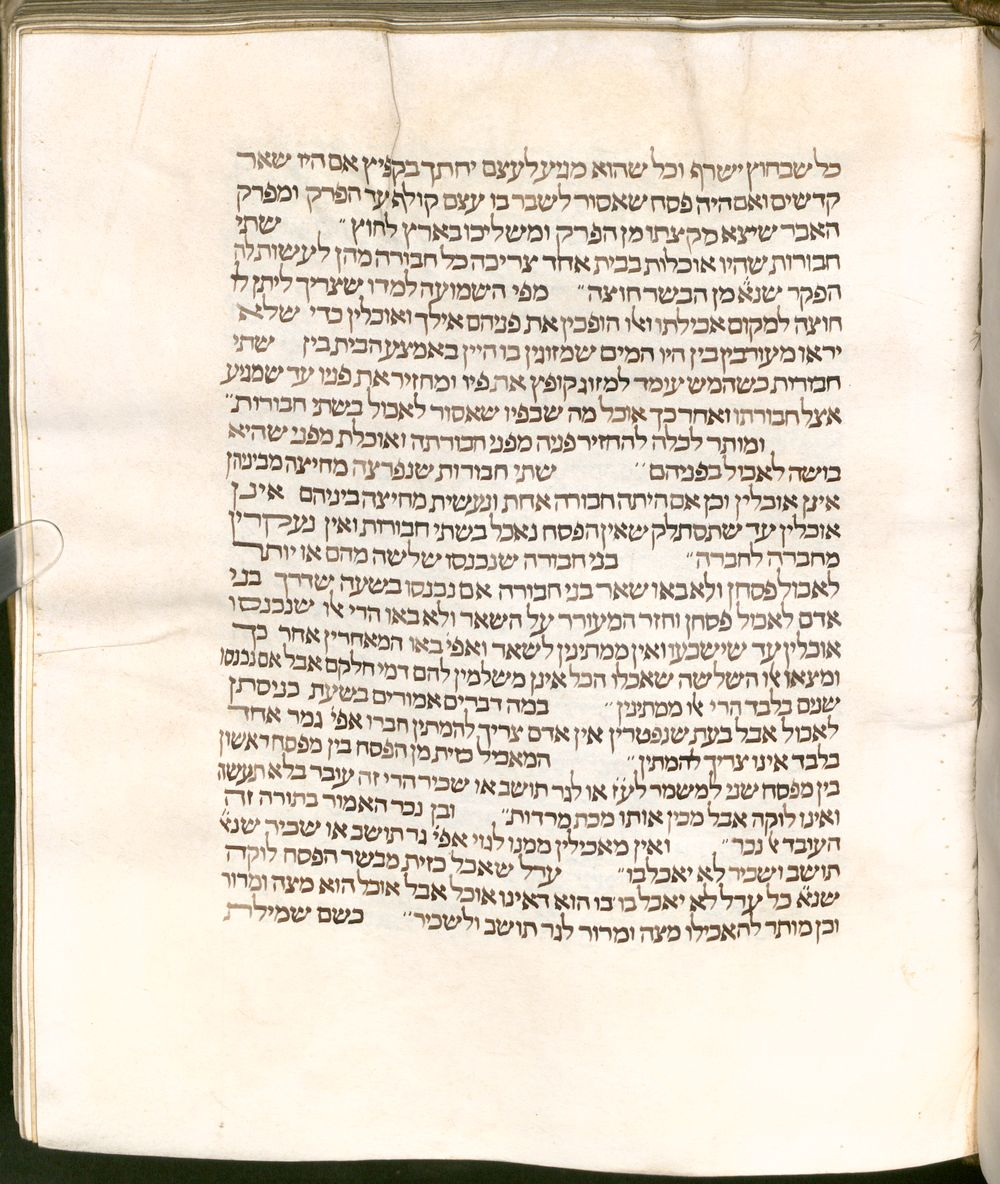 כל שבחוץ ישרף וכל שהוא מגיע לעצם יחתך בקפיץ אם היו שאר
קדשים ואם היה פסח שאסור לשבר בו עצם קולף עד הפרק ומפרק
האבר שיצא מקצתו מן הפרק ומשליכו בארץ לחוץ״ שתי
חבורות שהיו אוכלות בבית אחד צריכה כל חבורה מהן לעשות לה
הפקר שנ״א מן הבשר חוצה״ מפי השמועה למדו שצריך ליתן לו
חוצה למקום אכילתו ואו הופכין את פניהם אילך ואוכלין כדי שלא
יראו מעורבין בין היו המים שמזוגין בו היין באמצע הבית בין שתי
חבורות כשהמש עומד למזוג קופץ את פיו ומחזיר את פניו עד שמגיע
אצל חבורתו ואחר כך אוכל מה שבפיו שאסור לאכול בשתי חבורות״
ומותר לכלה להחזיר פניה מפני חבורתה ואוכלת מפני שהיא
בושה לאכול בפניהם״ שתי חבורות שנפרצה מחיצה מביניהן
אינן אוכלין וכן אם היתה חבורה אחת ונעשית מחיצה ביניהם אינן
אוכלין עד שתסתלק שאין הפסח נאכל בשתי חבורות ואין נעקרין
מחברה לחברה״ בני חבורה שנכנסו שלשה מהם או יותר
לאכול פסחן ולא באו שאר בני חבורה אם נכנסו בשעה שהדרך בני
אדם לאכול פסחן וחזר המעורר על השאר ולא באו הרי או שנכנסו
אוכלין עד שישבעו ואין ממתינין לשאר ואפי׳ באו המאחרין אחר כך
ומצאו או השלשה שאכלו הכל אינן משלמין להם דמי חלקם אבל אם נכנסו
שנים בלבד הרי או ממתינין״ במה דברים אמורים בשעת כניסתן
לאכול אבל בעת שנפטרין אין אדם צריך להמתין חברו אפי׳ גמר אחד
בלבד אינו צריך להמתין״ המאכיל כזית מן הפסח בין מפסח ראשון
בין מפסח שני למשמר לע״ז או לגר תושב או שכיר הרי זה עובר בלא תעשה
ואינו לוקה אבל מכין אותו מכת מרדות״ ובן נכר האמור בתורה זה
העובד א נכר״ ואין מאכילין ממנו לגוי אפי׳ גר תושב או שכיר שנ״א
תושב ושכיר לא יאכל בו״ ערל שאכל כזית מבשר הפסח לוקה
שנ״א כל ערל לא יאכל בו בו הוא דאינו אוכל אבל אוכל הוא מצה ומרור
וכן מותר להאכילו מצה ומרור לגר תושב ולשכיר״ כשם שמילת